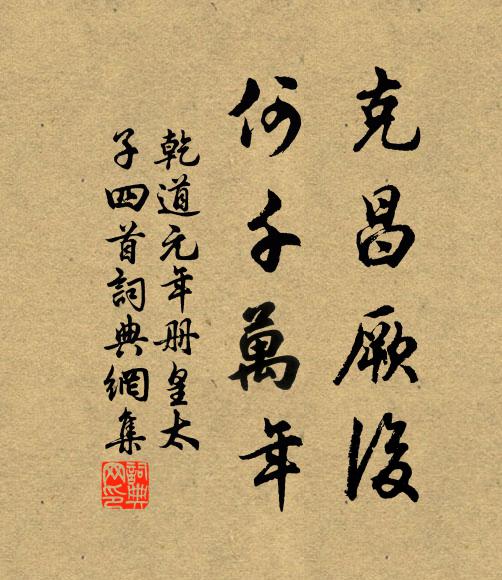 克昌厥後
何千萬年
乾道元年册皇太
子四首詞典網集
詞典
网印